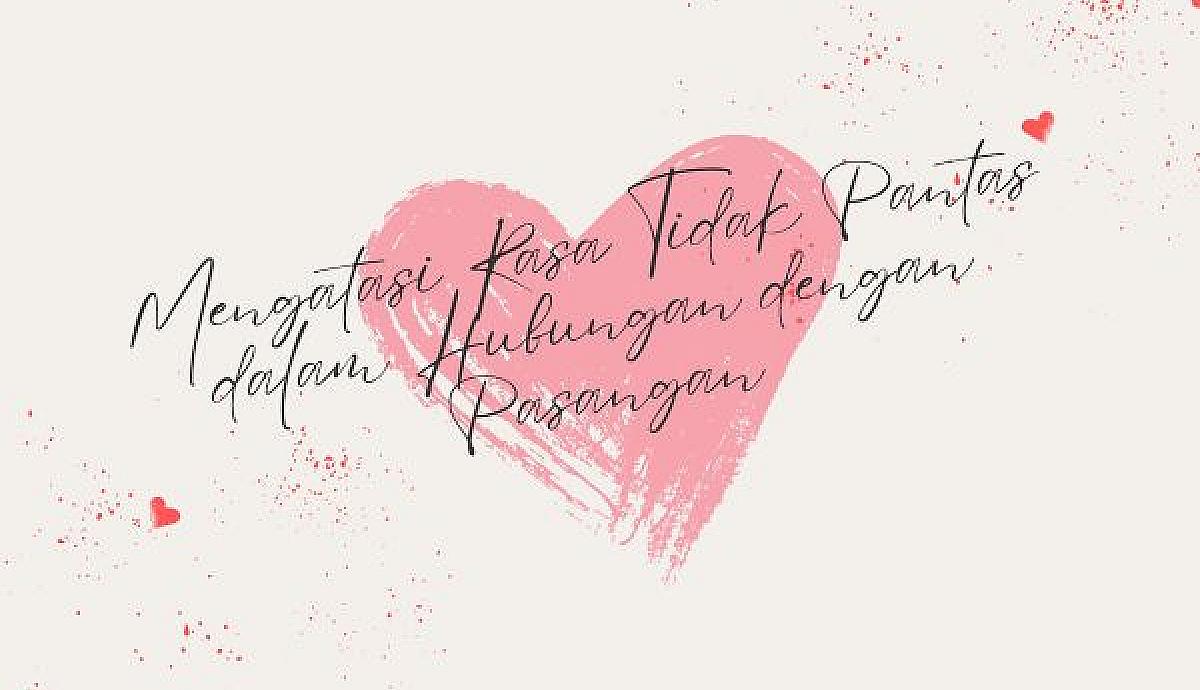 Mengatasi Rasa Tidak Pantas
dalam Hubungan dengan
Pasangan